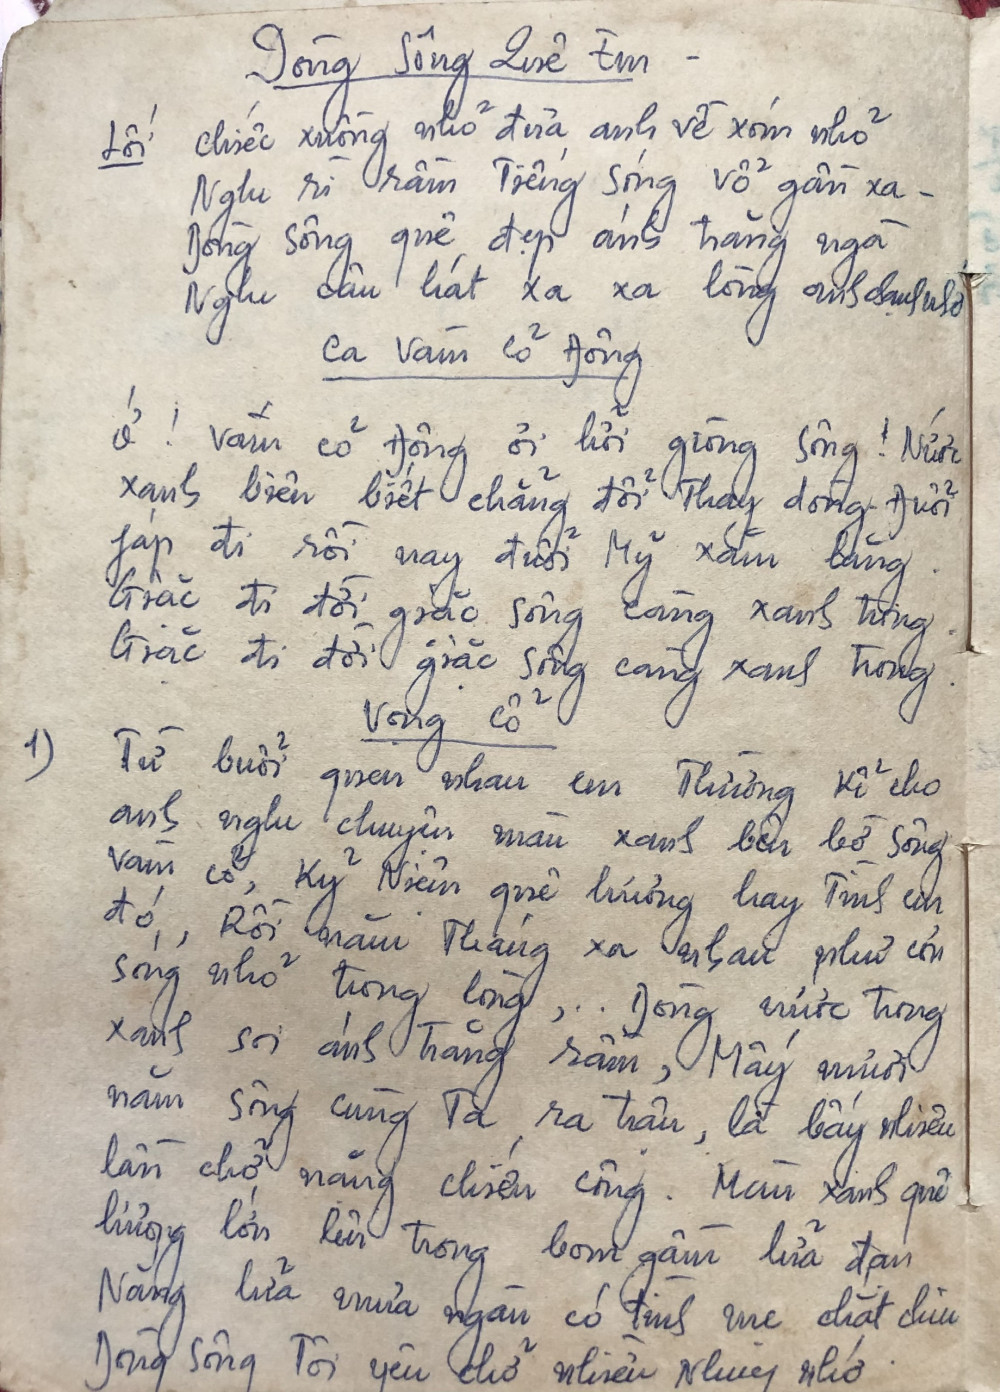 Dòng Sông Quê Em -
Lối chiếc xuồng nhỏ đưa anh về xóm nhỏ
Nghe rì rầm Tiếng Sóng vổ gần xa -
Dòng Sông quê đẹp ánh trăng ngà
Nghe câu hát xa xa lòng anh chạnh nhớ
Ca Vàm Cỏ Đông
Ớ ! Vàm cỏ Đông ơi hởi giòng Sông ! Nước
xanh biên biết chẳng đổi Thay dòng. Đuổi
Páp đi rồi nay đuổi Mỹ xăm lăng.
Giặc đi đời giặc Sông càng xanh trong.
Giặc đi đời giặc Sông càng xanh trong.
Vọng Cổ
1) Từ buổi quen nhau em Thường Kể cho
anh nghe chuyện màu xanh bên bờ Sông
Vàm cỏ, Kỷ Niệm quê hương hay Tình em
đó, Rồi năm Tháng xa nhau như cón
sóng nhỏ trong lòng,.. Dòng nước trong
xanh soi ánh trăng rằm, Mấy mươi
năm Sông cùng Ta ra trận, là bấy nhiêu
lần chở nặng chiến công. Màu xanh quê
hương lớn lên trong bom gầm lửa đạn
Nắng lửa mưa ngàn có tình mẹ chắt chiu
Dòng Sông Tôi yêu chở nhiều Nhung nhớ.